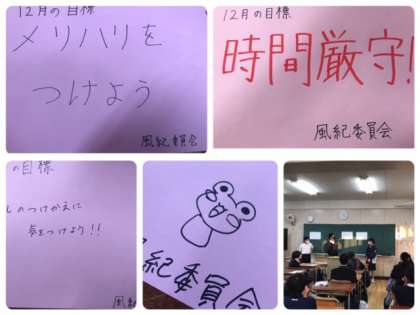 12月の目標
メリハリを
つけよう
風紀委員会
12月の目標
時間厳守!
風紀委員会
の目標
しのつけかえに
気をつけよう!!
風紀
紀委員会